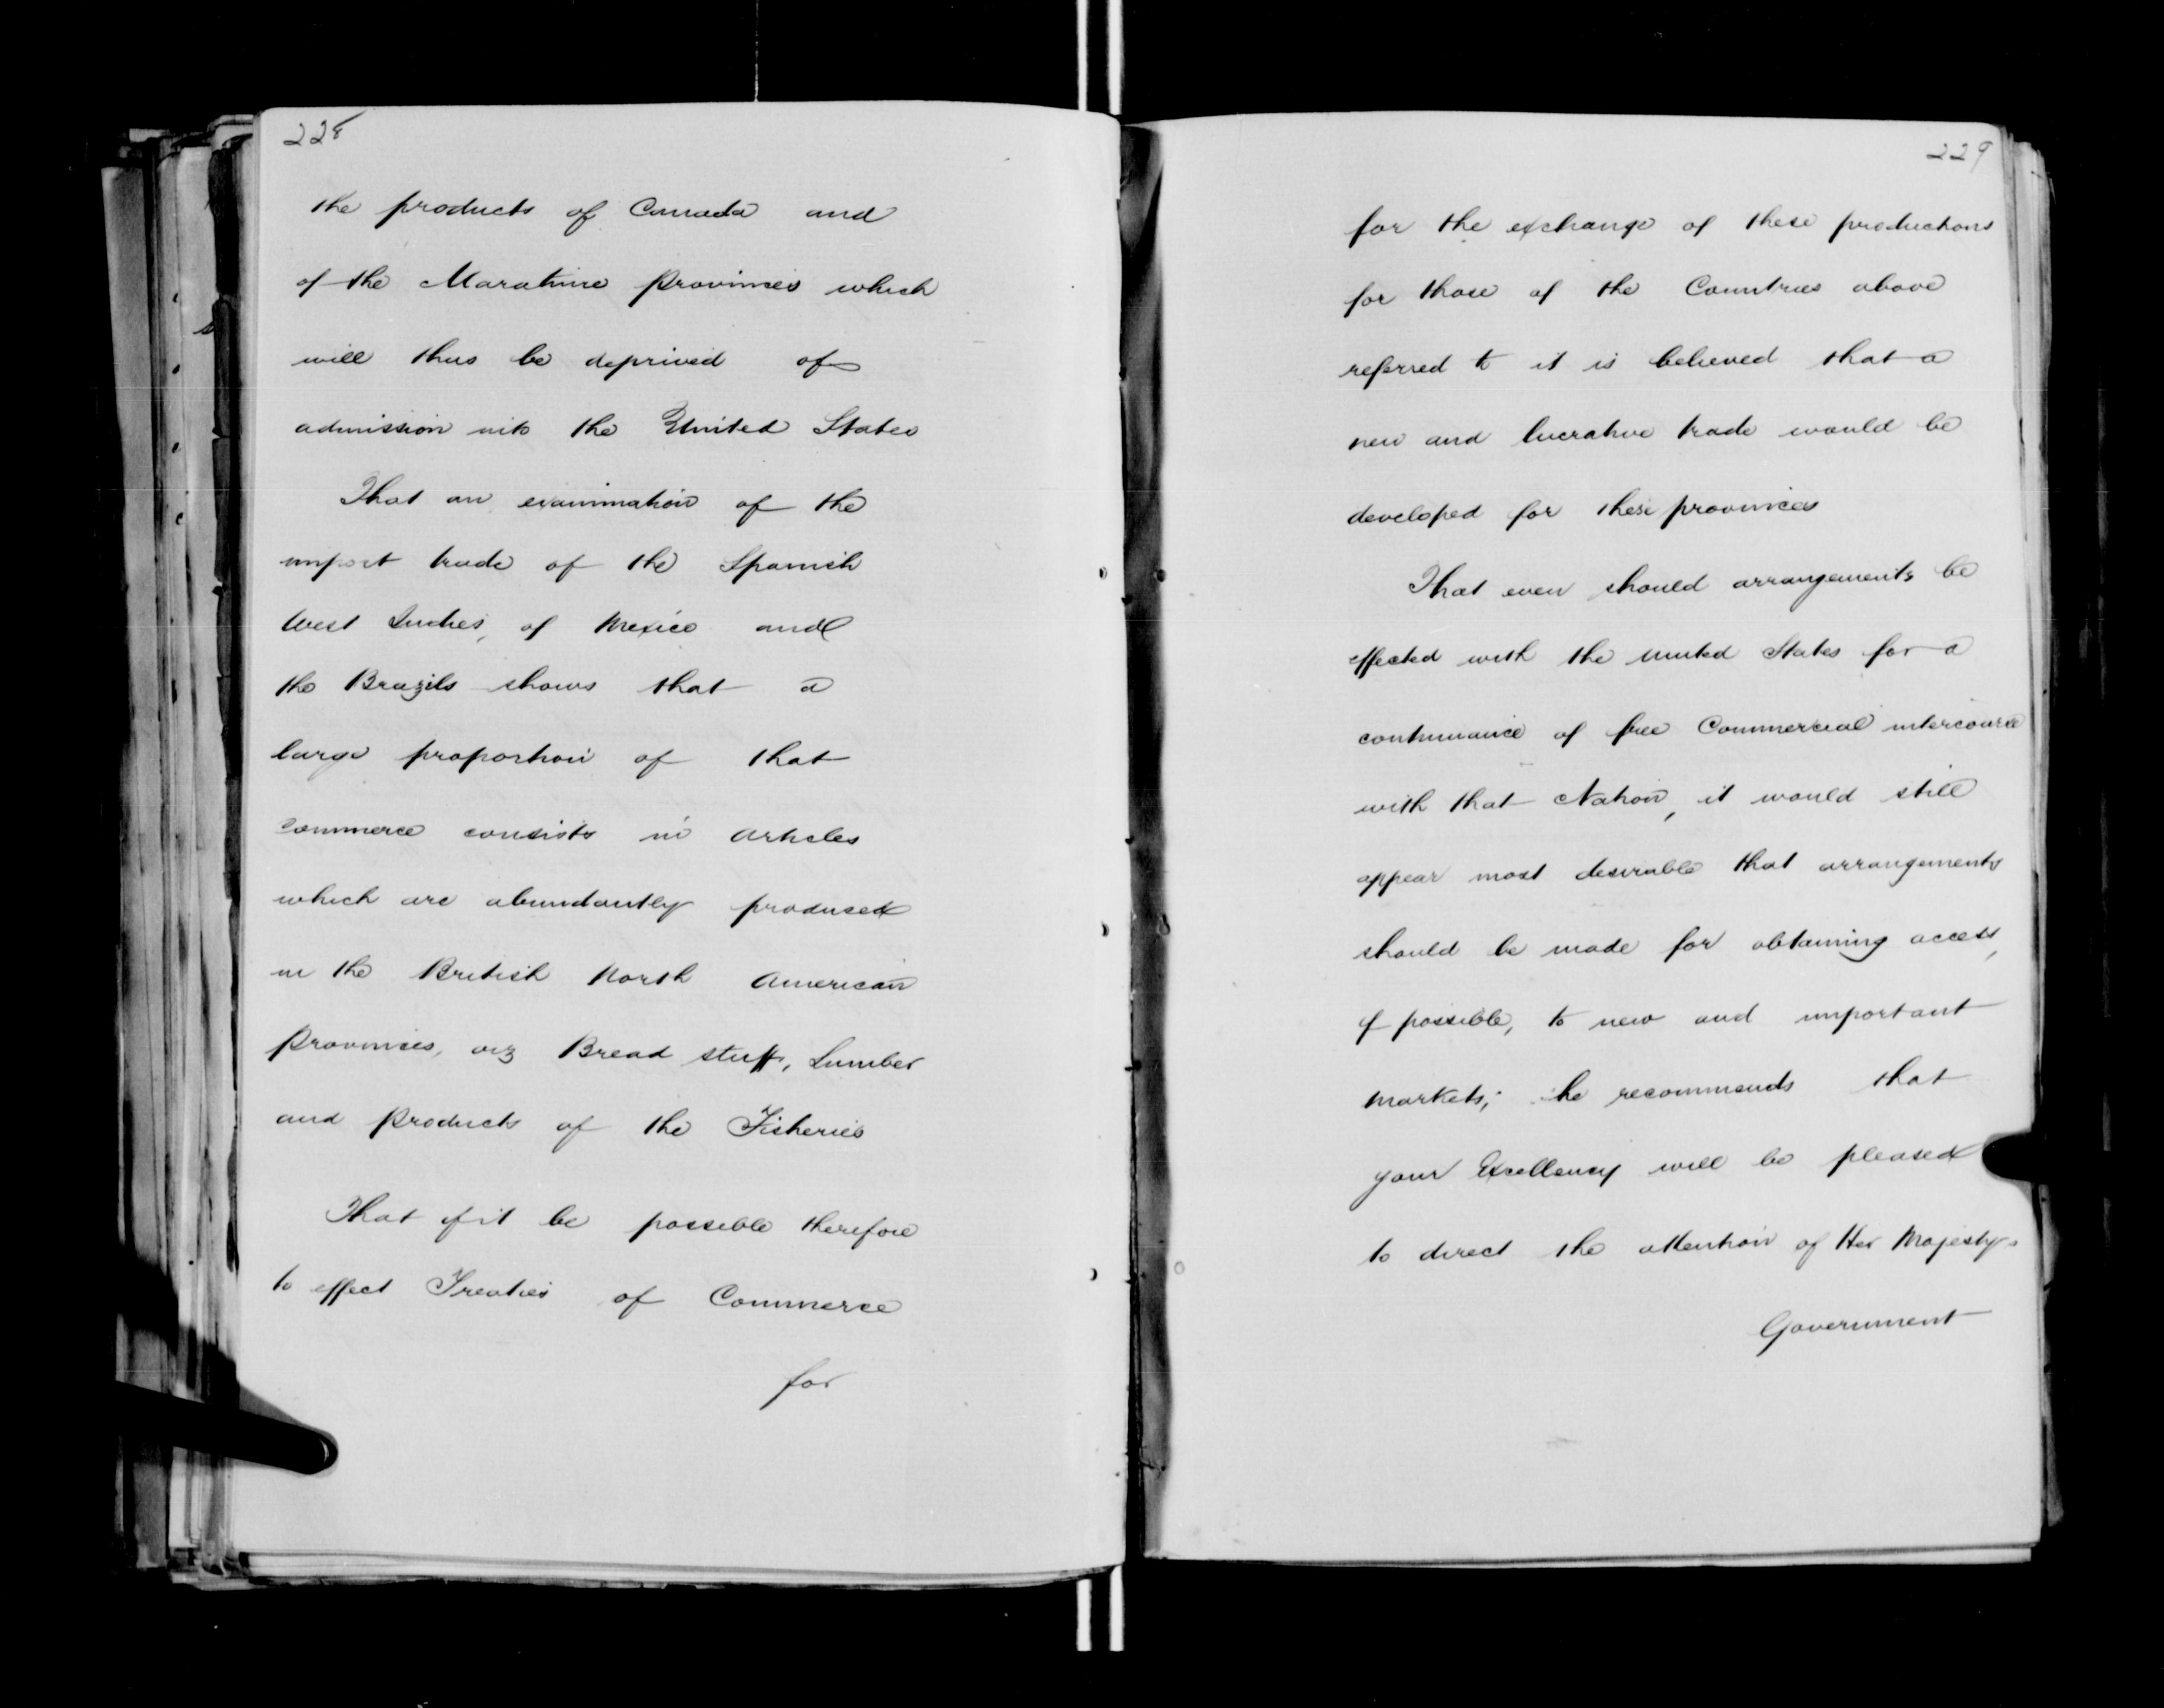 228
the products of Canada and
of the Maratime provinces which
will thus be deprived of
admission into the United States
That an examination of the
import trade of the Spanish
West Indies, of Mexico and
the Brazils shows that a
large proportion of that
commerce consists in articles
which are abundantly produced
in the British North American
provinces, viz Bread stuffs, Lumber
and products of the Fisheries
That if it be possible therefore
to effect Treaties of Commerce
for
229
for the exchange of these productions
for those of the Countries above
referred to it is believed that a
new and lucrative trade would be
developed for these provinces
That even should arrangements be
effected with the United States for a
continuance of free Commercial intercourse
with that Nation, it would still
appear most desirable that arrangements
should be made for obtaining access,
if possible, to new and important
markets; he recommends that
your Excellency will be pleased
to direct the attention of Her Majesty's
Government